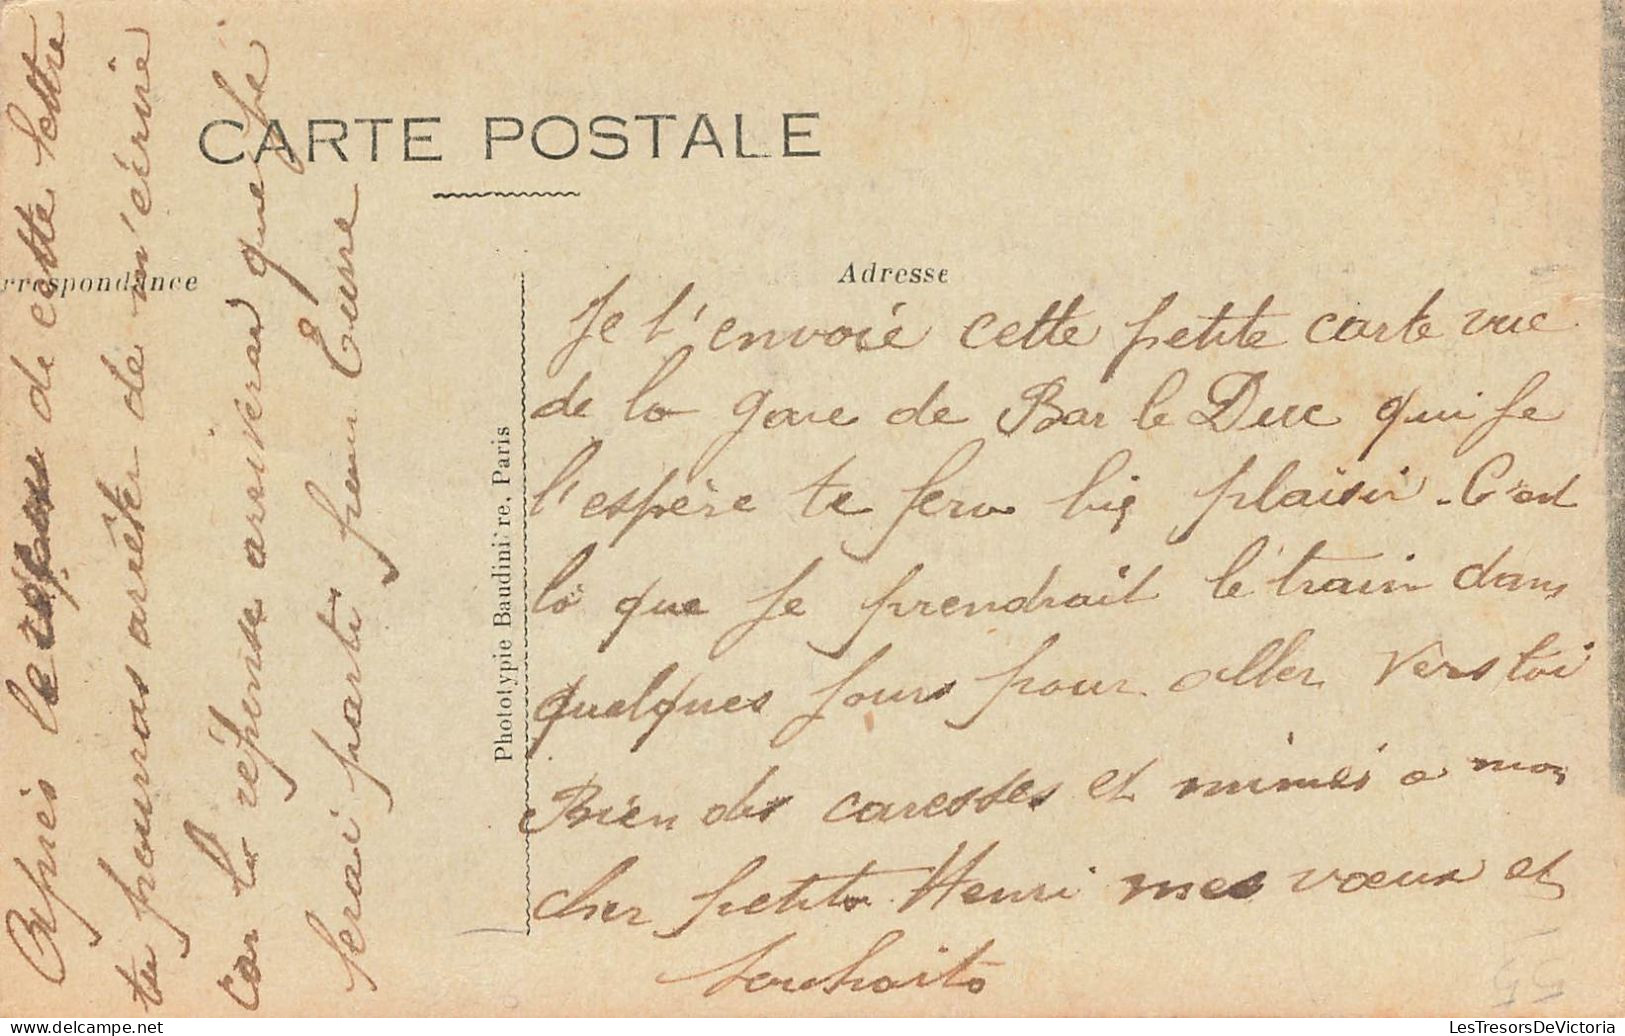 CARTE POSTALE
rrespondance
Adresse
Photot­ypie Baudinière, Paris
Je t'envoie cette petite carte vue
de la gare de Bar le Duc qui je
l'espère te fera bie plaisir. C'est
là que je prendrait le train dans
quelques jours pour aller vers toi
Bien des caresses et mimis a mon
cher petit Henri mes vœux et
souhaits
Après le de cette lettre
tu pourras arrêter de m'écrire
car la réponse arriverai que je
serai parti pour
LesTresorsDeVictoria
https://www.delcampe.net